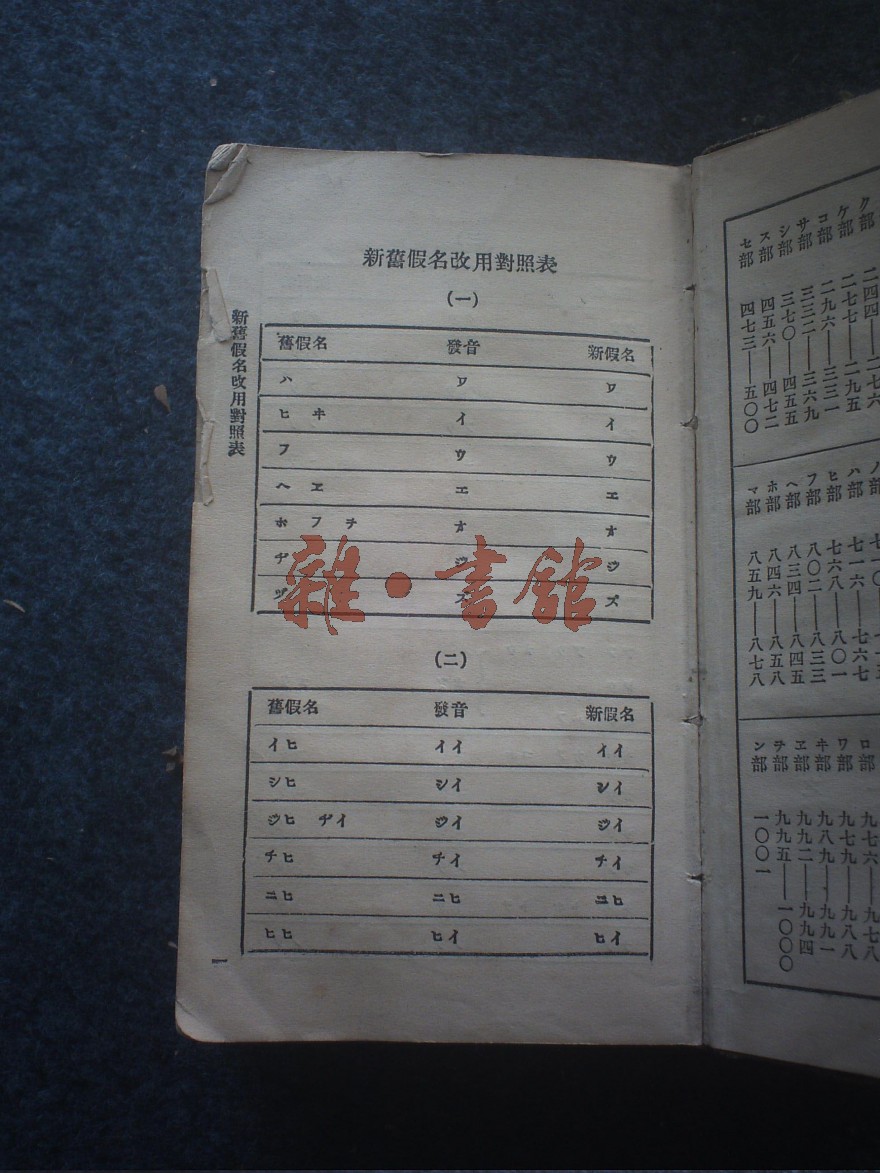 新舊假名改用對照表
(一)
舊假名 發音 新假名
ハ ワ ワ
ヒ ヰ イ イ
フ ウ ウ
ヘ ヱ エ エ
ホ フ ヲ オ オ
ヂ ジ ジ
ヅ ズ ズ
(二)
舊假名 發音 新假名
イヒ イイ イイ
シヒ シイ シイ
ジヒ ヂイ ジイ ジイ
チヒ チイ チイ
ニヒ ニヒ ニヒ
ヒヒ ヒイ ヒイ
新舊假名改用對照表
一
雜·書館
ク部 二四四——二七六
ケ部 二七七——二九五
コ部 二九六——三三一
サ部 三三二——三六九
シ部 三七〇——四五五
ス部 四五六——四七二
セ部 四七三——五〇〇
ハ部 七一六——七六七
ヒ部 七六八——八〇一
フ部 八〇二——八三三
ヘ部 八三四——八四五
ホ部 八四六——八五八
マ部 八五九——八七八
ロ部 九七六——九七八
ワ部 九七九——九八八
ヰ部 九八九——九九一
ヱ部 九九二——九九四
ヲ部 九九五——一〇〇〇
ン部 一〇〇一